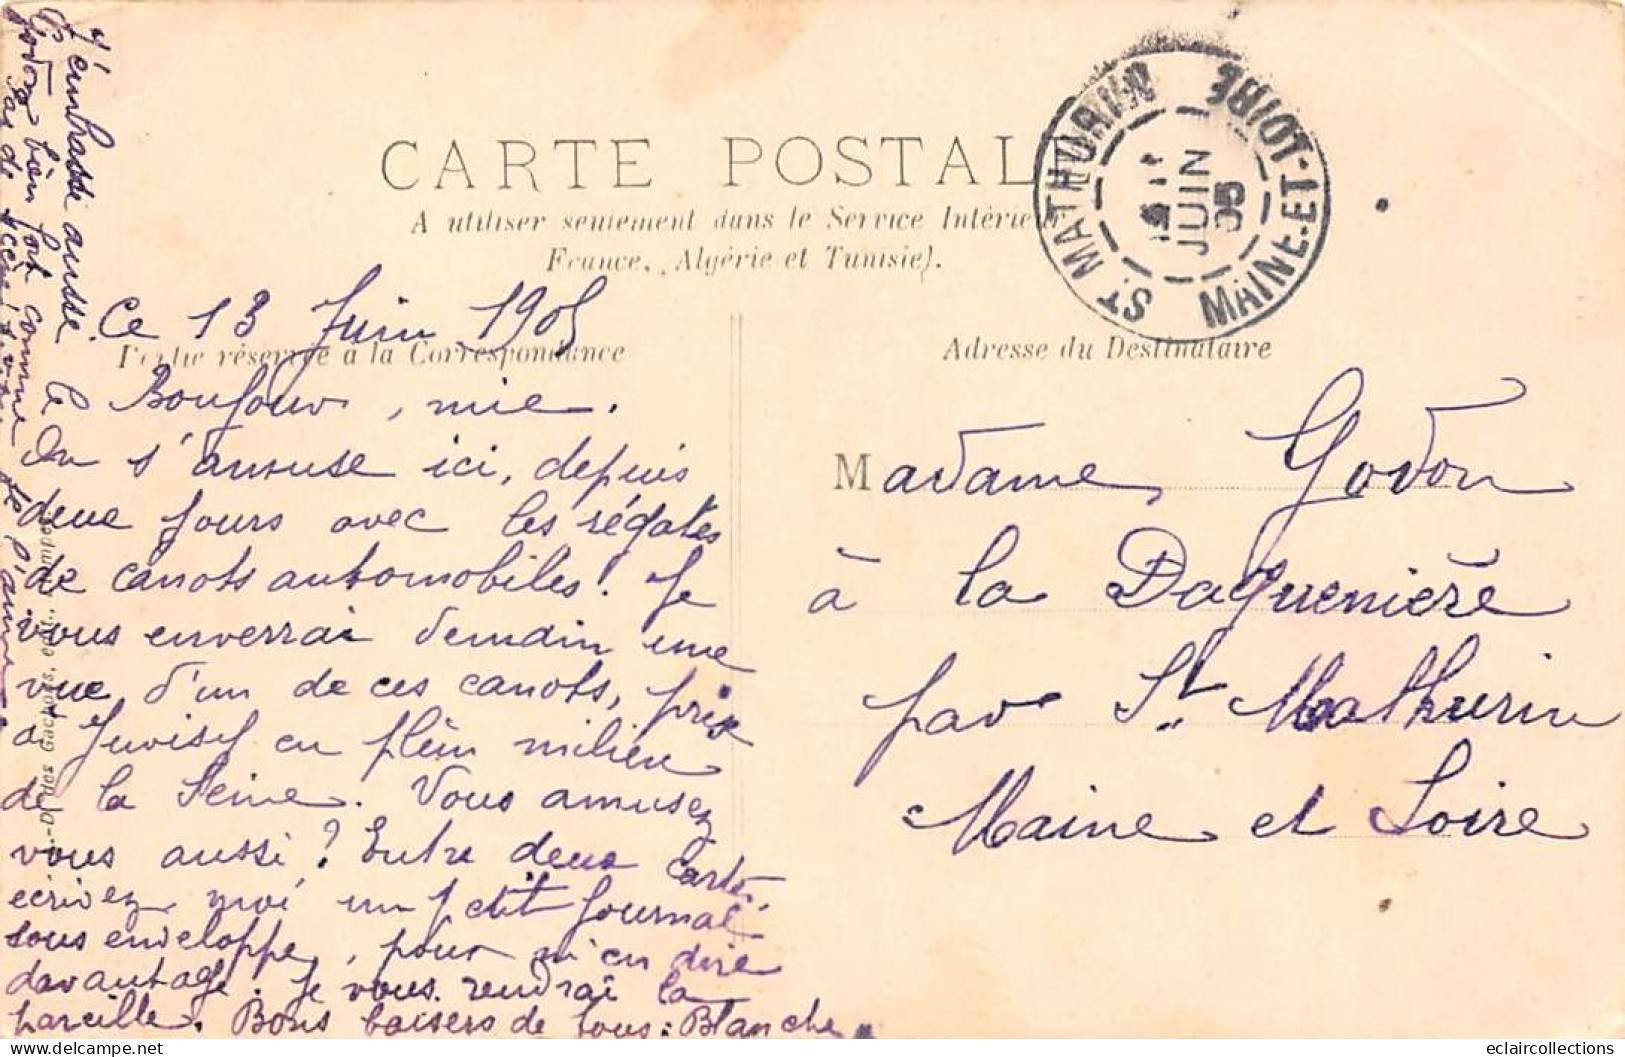 CARTE POSTALE
A utiliser seulement dans le Service Intérieur
France, Algérie et Tunisie).
Partie réservée à la Correspondance
Adresse du Destinataire
ST MATHURIN
MAINE-ET-LOIRE
JUIN
05
Ce 13 Juin 1905
Boujour, mie.
On s'amuse ici, depuis
deux jours avec les régates
de canots automobiles. Je
vous enverrai demain une
vue d'un de ces canots, prise
à Juvisy en plein milieu
de la Seine. Vous amusez
vous aussi ? Entre deux cartes
écrivez moi un petit journal
sous enveloppe, pour m'en dire
davantage. Je vous rendrai la
pareille. Bons baisers de tous : Blanche
J'embrasse aussi le
Godon bien fort comme je l'aime
Madame Godon
à la Daguenière
par St Mathurin
Maine et Loire
des Gachons, édit.
eclaircollections
https://www.delcampe.net